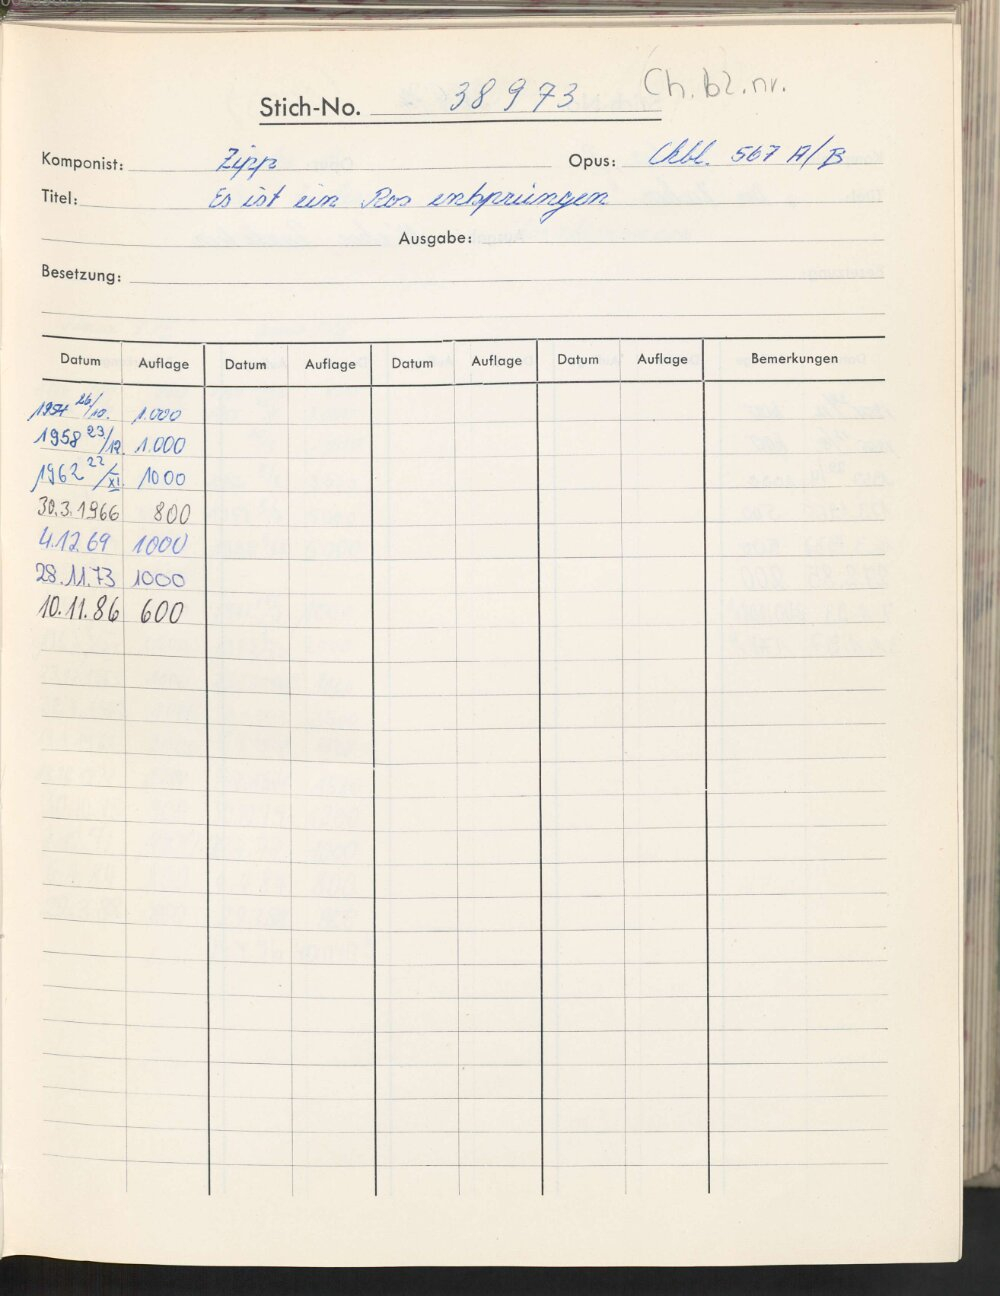 Ch.bl.nr.
Stich-No. 38973
Komponist: Zipp Opus: Chbl. 567 A/B
Titel: Es ist ein Ros entsprungen
Ausgabe:
Besetzung:
Datum Auflage Datum Auflage Datum Auflage Datum Auflage Bemerkungen
1954 26/10. 1.000
1958 23/12. 1.000
1962 22/XI 1000
30.3.1966 800
4.12.69 1000
28.11.73 1000
10.11.86 600